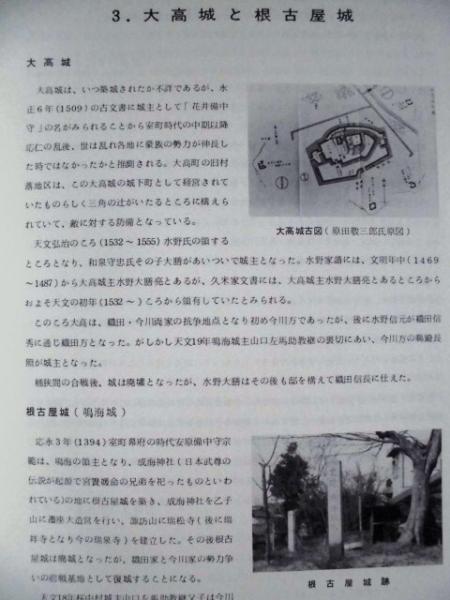 3．大高城と根古屋城
大高城
大高城は、いつ築城されたか不詳であるが、永
正6年(1509)の古文書に城主として「花井備中
守」の名がみられることから室町時代の中期以降
応仁の乱後、世は乱れ各地に豪族の勢力が伸長し
た時ではなかったかと推測される。大高町の旧村
落地区は、この大高城の城下町として経営されて
いたものらしく三角の辻がいたるところに構えら
れていて、敵に対する防備となっている。
大高城古図(原田敬三郎氏原図)
天文弘治のころ(1532～1555)水野氏の領する
ところとなり、和泉守忠氏その子大膳があいついで城主となった。水野家譜には、文明年中(1469
～1487)から大高城主水野大膳亮とあるが、久米家文書には、大高城主水野大膳亮とあるところから
およそ天文の初年(1532～)ころから領有していたとみられる。
このころ大高は、織田・今川両家の抗争地点となり初め今川方であったが、後に水野信元が織田信
秀に通じ織田方となった。がしかし天文19年鳴海城主山口左馬助教継の裏切にあい、今川方の鵜殿長
照が城主となった。
桶狭間の合戦後、城は廃墟となったが、水野大膳はその後も邸を構えて織田信長に仕えた。
根古屋城(鳴海城)
応永3年(1394)室町幕府の時代安原備中守宗
範は、鳴海の領主となり、成海神社(日本武尊の
伝説が起源で宮簀媛命の兄弟を祀ったものといわ
れている)の地に根古屋城を築き、成海神社を乙子
山に遷座大造宮を行い、諏訪山に瑞松寺(後に瑞
祥寺となり今の瑞泉寺)を建立した。その後根古
屋城は廃城となったが、織田家と今川家の勢力争
いの前戦基地として復城することになる。
根古屋城跡
天文18年桜中村城主山口左馬助教継父子は今川